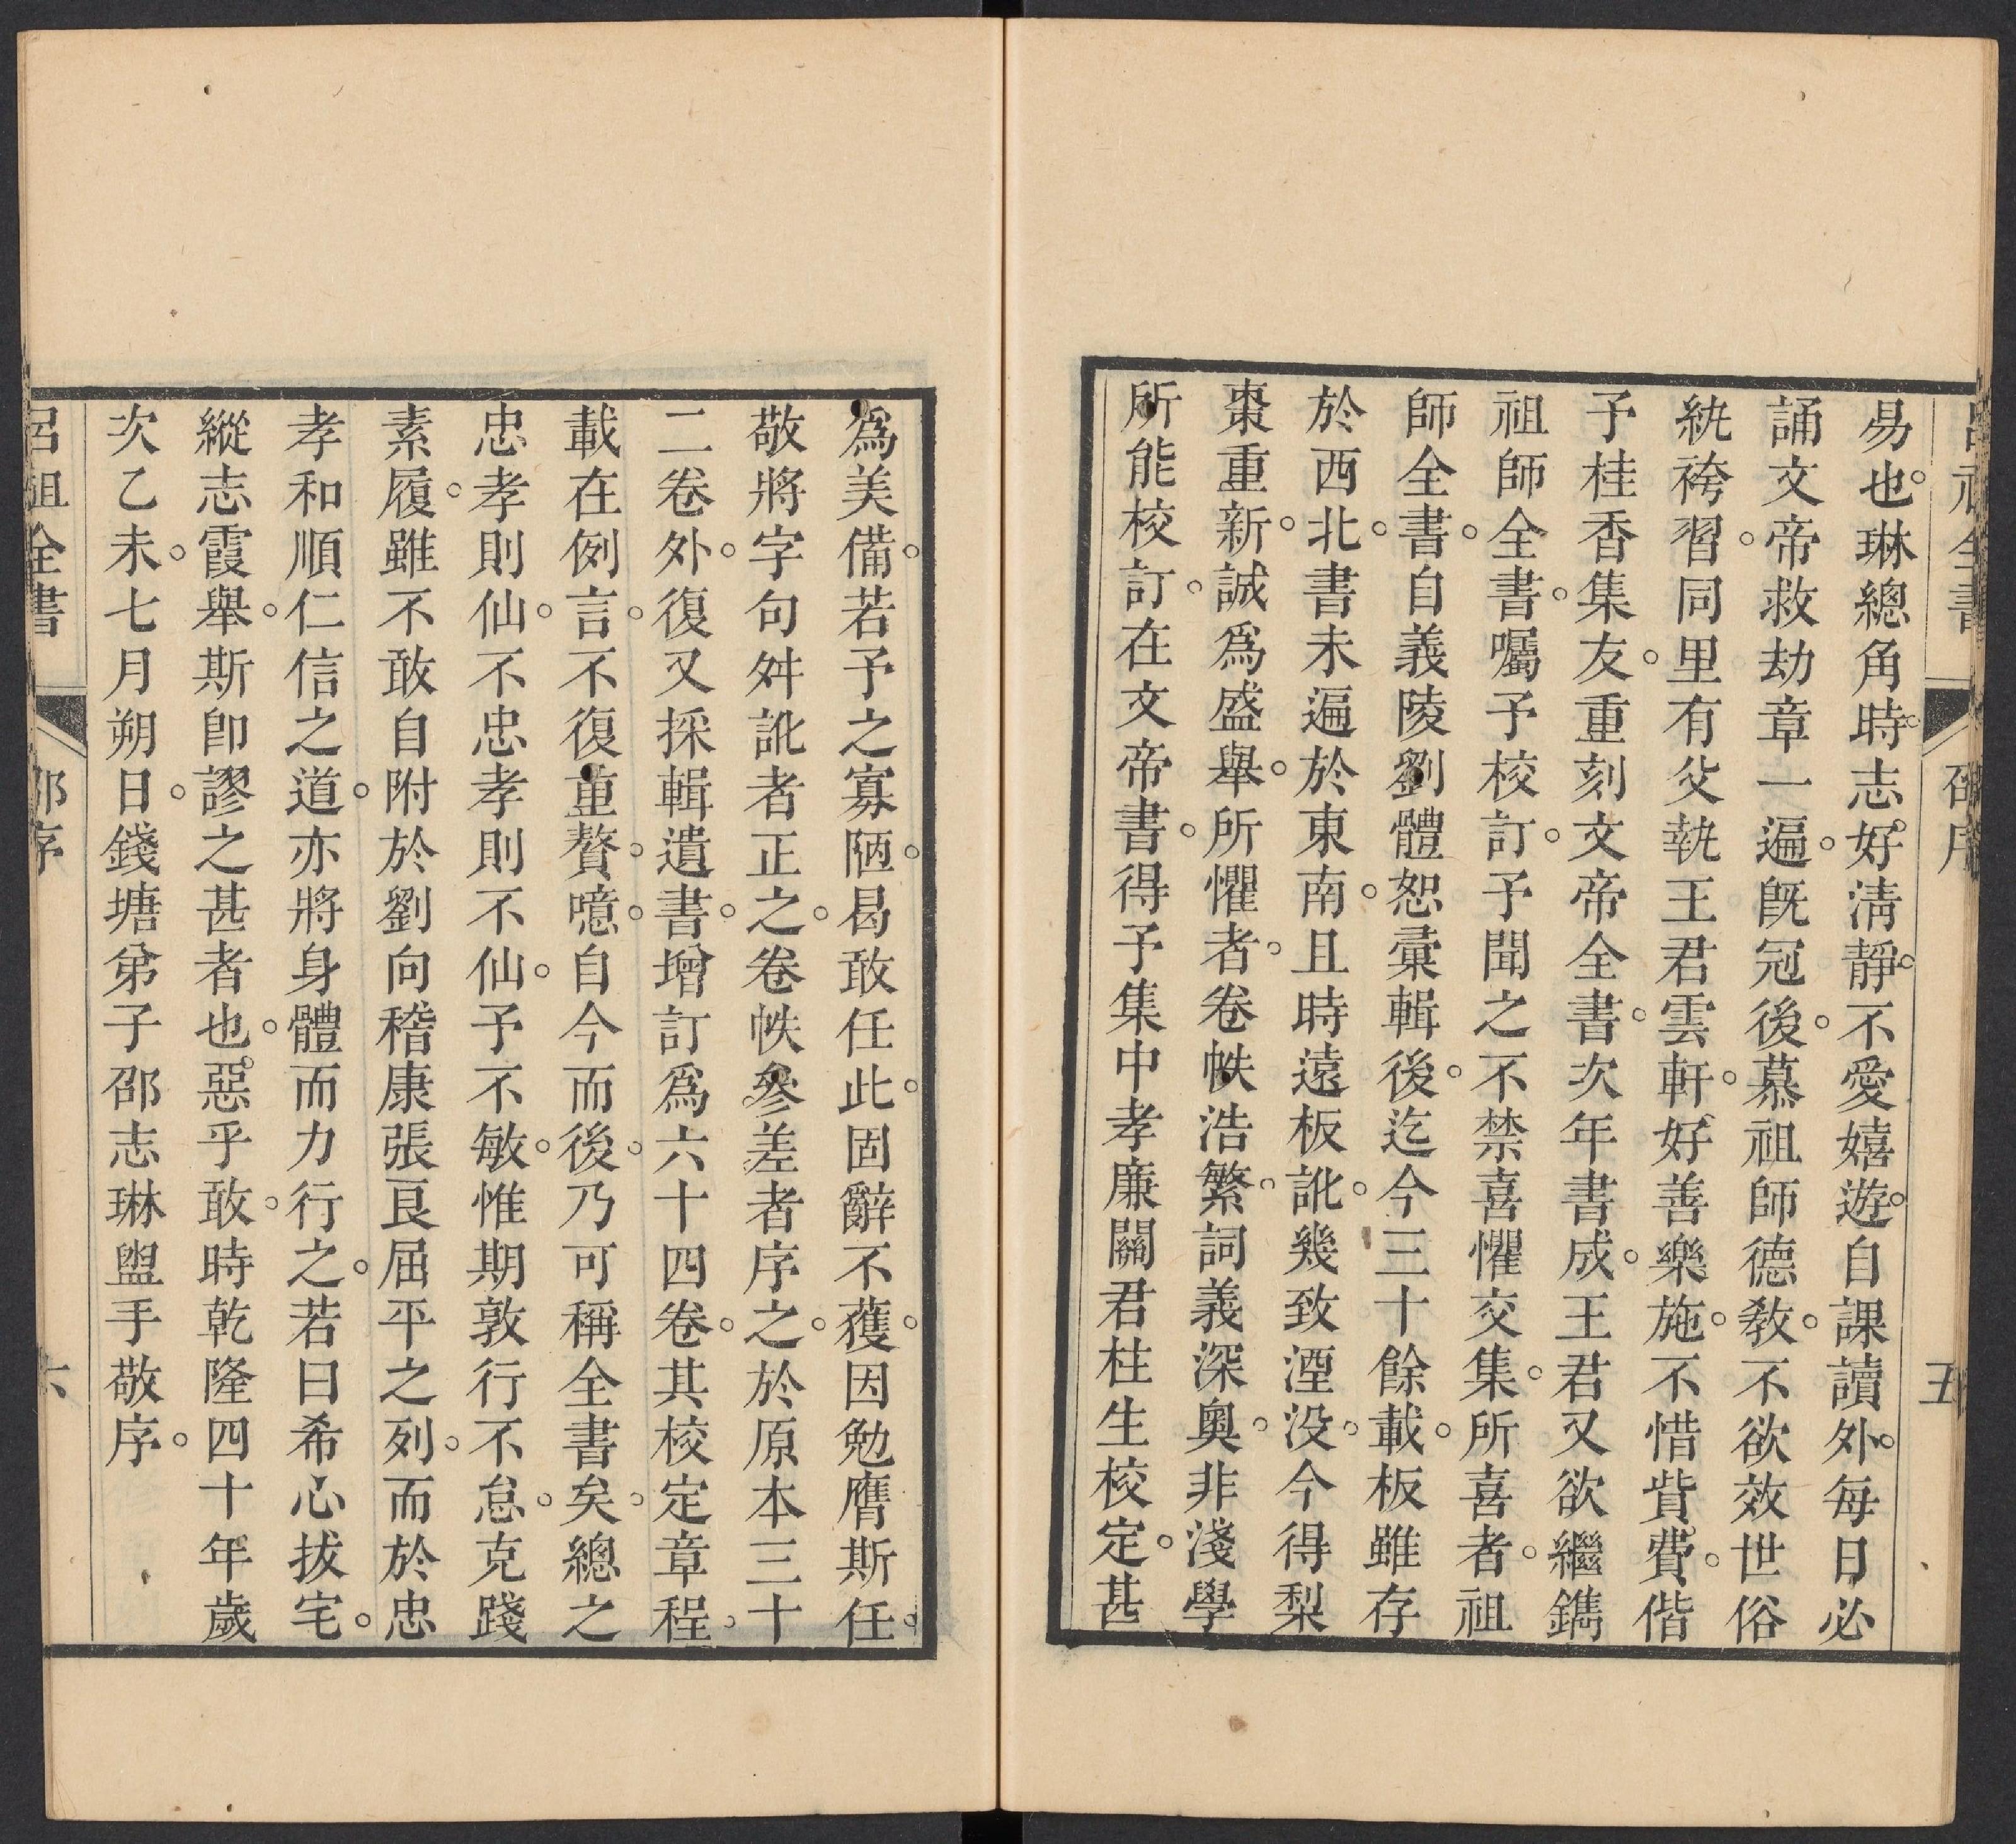 呂祖全書 邵序 五
易也。琳總角時。志好淸靜。不愛嬉遊。自課讀外。每日必
誦文帝救劫章一遍。旣冠後。慕祖師德敎。不欲效世俗
紈袴習。同里有父執王君雲軒。好善樂施。不惜貲費。偕
予桂香集友。重刻文帝全書。次年書成。王君又欲繼鐫
祖師全書。囑予校訂。予聞之不禁喜懼交集。所喜者。祖
師全書。自義陵劉體恕彙輯後。迄今三十餘載。板雖存
於西北。書未遍於東南。且時遠板訛。幾致湮没。今得梨
棗重新。誠爲盛舉。所懼者。卷帙浩繁。詞義深奥。非淺學
所能校訂。在文帝書。得予集中孝廉關君柱生校定。甚
爲美備。若予之寡陋。曷敢任此。固辭不獲。因勉膺斯任。
敬將字句舛訛者正之。卷帙參差者序之。於原本三十
二卷外。復又採輯遺書。增訂爲六十四卷。其校定章程。
載在例言。不復重贅。噫。自今而後。乃可稱全書矣。總之
忠孝則仙。不忠孝則不仙。予不敏。惟期敦行不怠。克踐
素履。雖不敢自附於劉向稽康張良屈平之列。而於忠
孝和順仁信之道。亦將身體而力行之。若曰希心拔宅。
縱志霞舉。斯卽謬之甚者也。惡乎敢。時乾隆四十年歲
次乙未。七月朔日。錢塘弟子邵志琳盥手敬序。
呂祖全書 邵序 六